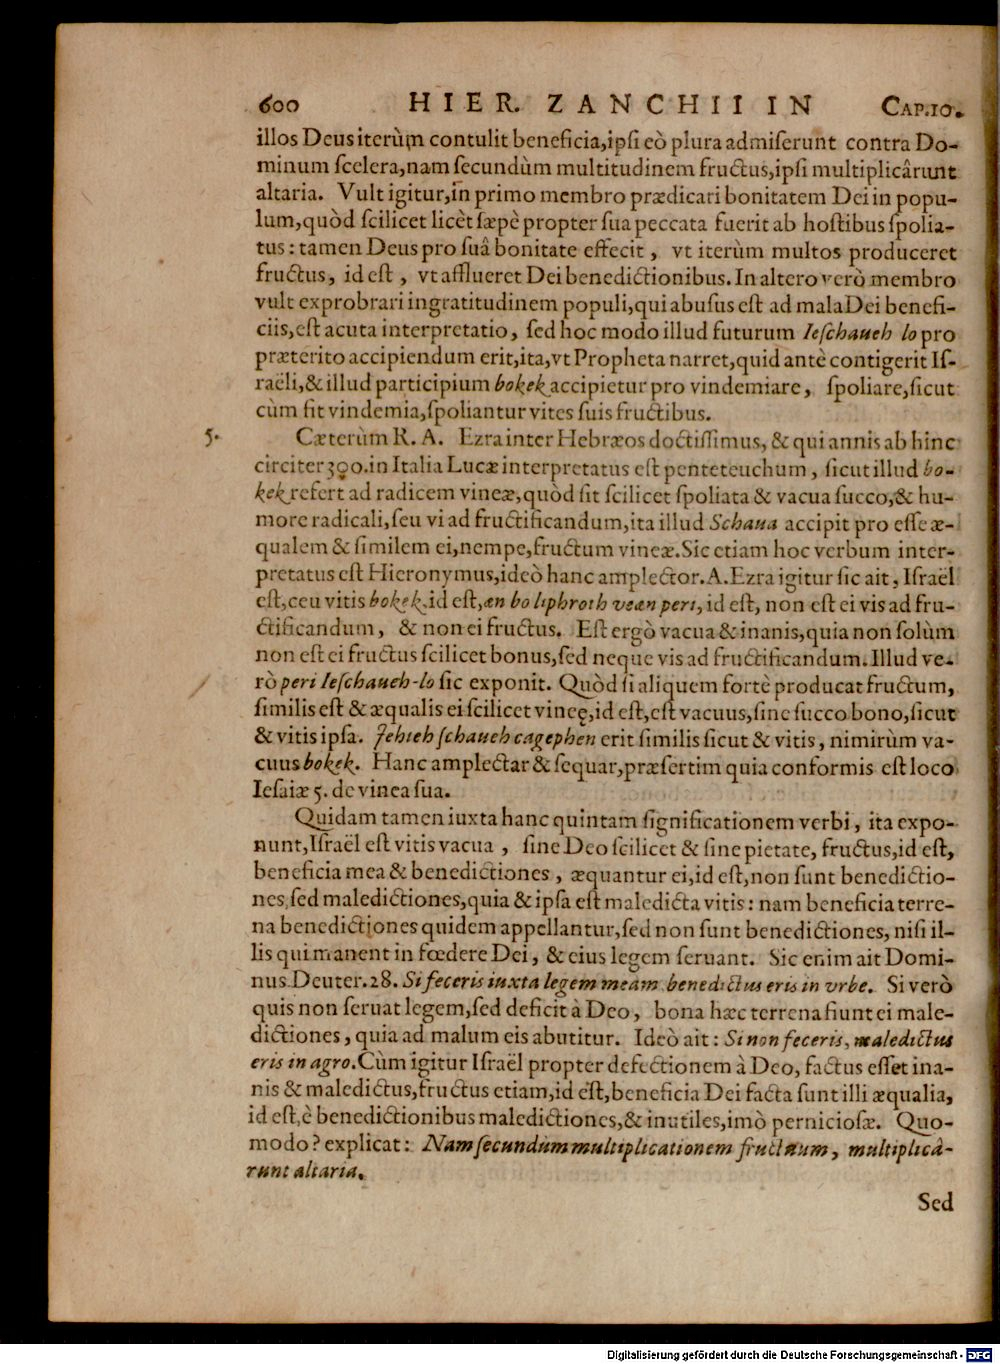 600 HIER. ZANCHII IN CAP.10.
illos Deus iterùm contulit beneficia, ipsi eò plura admiserunt contra Do-
minum scelera, nam secundùm multitudinem fructus, ipsi multiplicârunt
altaria. Vult igitur, in primo membro prædicari bonitatem Dei in popu-
lum, quòd scilicet licèt sæpè propter sua peccata fuerit ab hostibus spolia-
tus: tamen Deus pro suâ bonitate effecit, vt iterùm multos produceret
fructus, id est, vt afflueret Dei benedictionibus. In altero verò membro
vult exprobrari ingratitudinem populi, qui abusus est ad mala Dei benefi-
ciis, est acuta interpretatio, sed hoc modo illud futurum Ieschaueh lo pro
præterito accipiendum erit, ita, vt Propheta narret, quid antè contigerit Is-
raëli, & illud participium bokek accipietur pro vindemiare, spoliare, sicut
cùm fit vindemia, spoliantur vites suis fructibus.
5. Cæterùm R. A. Ezra inter Hebræos doctissimus, & qui annis ab hinc
circiter 390. in Italia Lucæ interpretatus est penteteuchum, sicut illud bo-
kek refert ad radicem vineæ, quòd sit scilicet spoliata & vacua succo, & hu-
more radicali, seu vi ad fructificandum, ita illud Schaua accipit pro esse æ-
qualem & similem ei, nempe, fructum vineæ. Sic etiam hoc verbum inter-
pretatus est Hieronymus, ideò hanc amplector. A. Ezra igitur sic ait, Israël
est, ceu vitis bokek id est, æn bo liphroth veæn peri, id est, non est ei vis ad fru-
ctificandum, & non ei fructus. Est ergò vacua & inanis, quia non solùm
non est ei fructus scilicet bonus, sed neque vis ad fructificandum. Illud ve-
rò peri Ieschaueh-lo sic exponit. Quòd si aliquem fortè producat fructum,
similis est & æqualis ei scilicet vineę, id est, est vacuus, sine succo bono, sicut
& vitis ipsa. Jehieh schaueh cagephen erit similis sicut & vitis, nimirùm va-
cuus bokek. Hanc amplectar & sequar, præsertim quia conformis est loco
Iesaiæ 5. de vinea sua.
Quidam tamen iuxta hanc quintam significationem verbi, ita expo-
nunt, Israël est vitis vacua, sine Deo scilicet & sine pietate, fructus, id est,
beneficia mea & benedictiones, æquantur ei, id est, non sunt benedictio-
nes, sed maledictiones, quia & ipsa est maledicta vitis: nam beneficia terre-
na benedictiones quidem appellantur, sed non sunt benedictiones, nisi il-
lis qui manent in fœdere Dei, & eius legem seruant. Sic enim ait Domi-
nus Deuter. 28. Si feceris iuxta legem meam benedictus eris in vrbe. Si verò
quis non seruat legem, sed deficit à Deo, bona hæc terrena fiunt ei male-
dictiones, quia ad malum eis abutitur. Ideò ait: Si non feceris, maledictus
eris in agro. Cùm igitur Israël propter defectionem à Deo, factus esset ina-
nis & maledictus, fructus etiam, id est, beneficia Dei facta sunt illi æqualia,
id est, è benedictionibus maledictiones, & inutiles, imò perniciosæ. Quo-
modo? explicat: Nam secundùm multiplicationem fructuum, multiplicâ-
runt altaria.
Sed
Digitalisierung gefördert durch die Deutsche Forschungsgemeinschaft - DFG